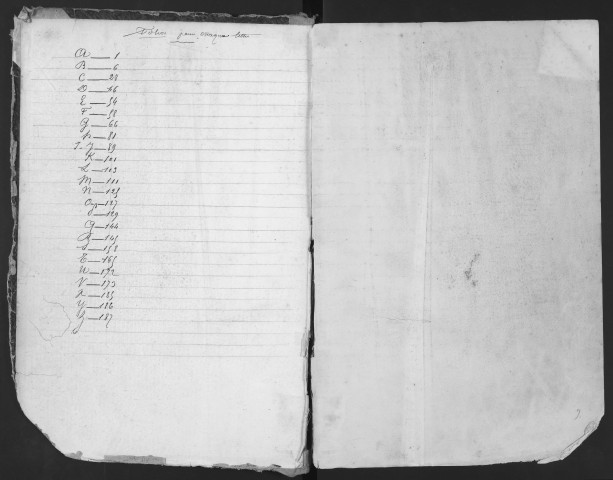 pour chaque lettre
A — 1
B — 6
C — 28
D — 46
E — 54
F — 58
G — 66
H — 81
I-J — 89
K — 101
L — 103
M — 111
N — 125
O — 127
P — 129
Q — 144
R — 145
S — 153
T — 165
W — 172
V — 173
X — 185
Y — 186
Z — 187